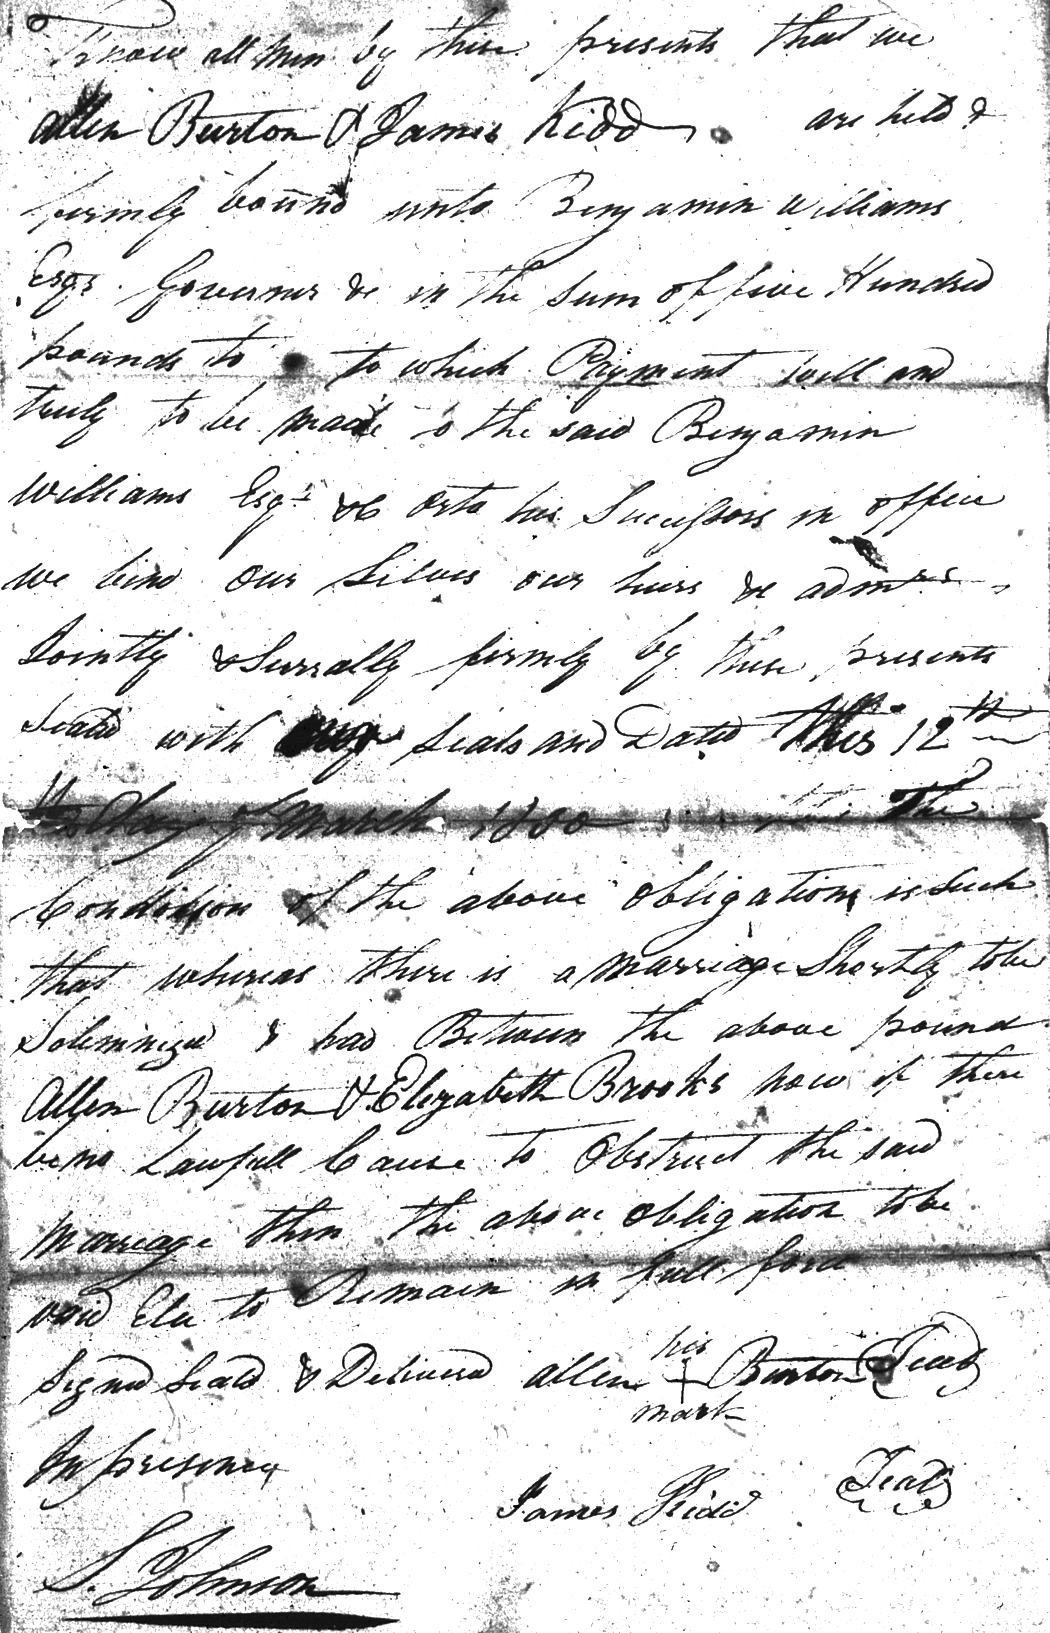 Know all men by these presents that we
Allen Burton & James Kidd are held &
firmly bound unto Benjamin Williams
Esqr. Governer &c in the Sum of five Hundred
pounds to to which Payment well and
truly to be made to the said Benjamin
Williams Esqr &c Orto his Successors in office
we bind our Selves our heirs &c admrs
Jointly & Surrally firmly by these presents
Seald with our Seals and Dated this 12th
Day of March 1800 The
Condition of the above obligation is Such
that whereas there is a marriage Shortly to be
Solemnized & had Between the above pound
Allen Burton & Elizabeth Brooks now if there
be no Lawfull Cause to Obstruct the said
Marriage then the above obligation to be
void Else to Remain in full force
Signed Seald & Delivered Allen his + mark Burton Seal
In presence
James Kidd Seal
S. Johnson